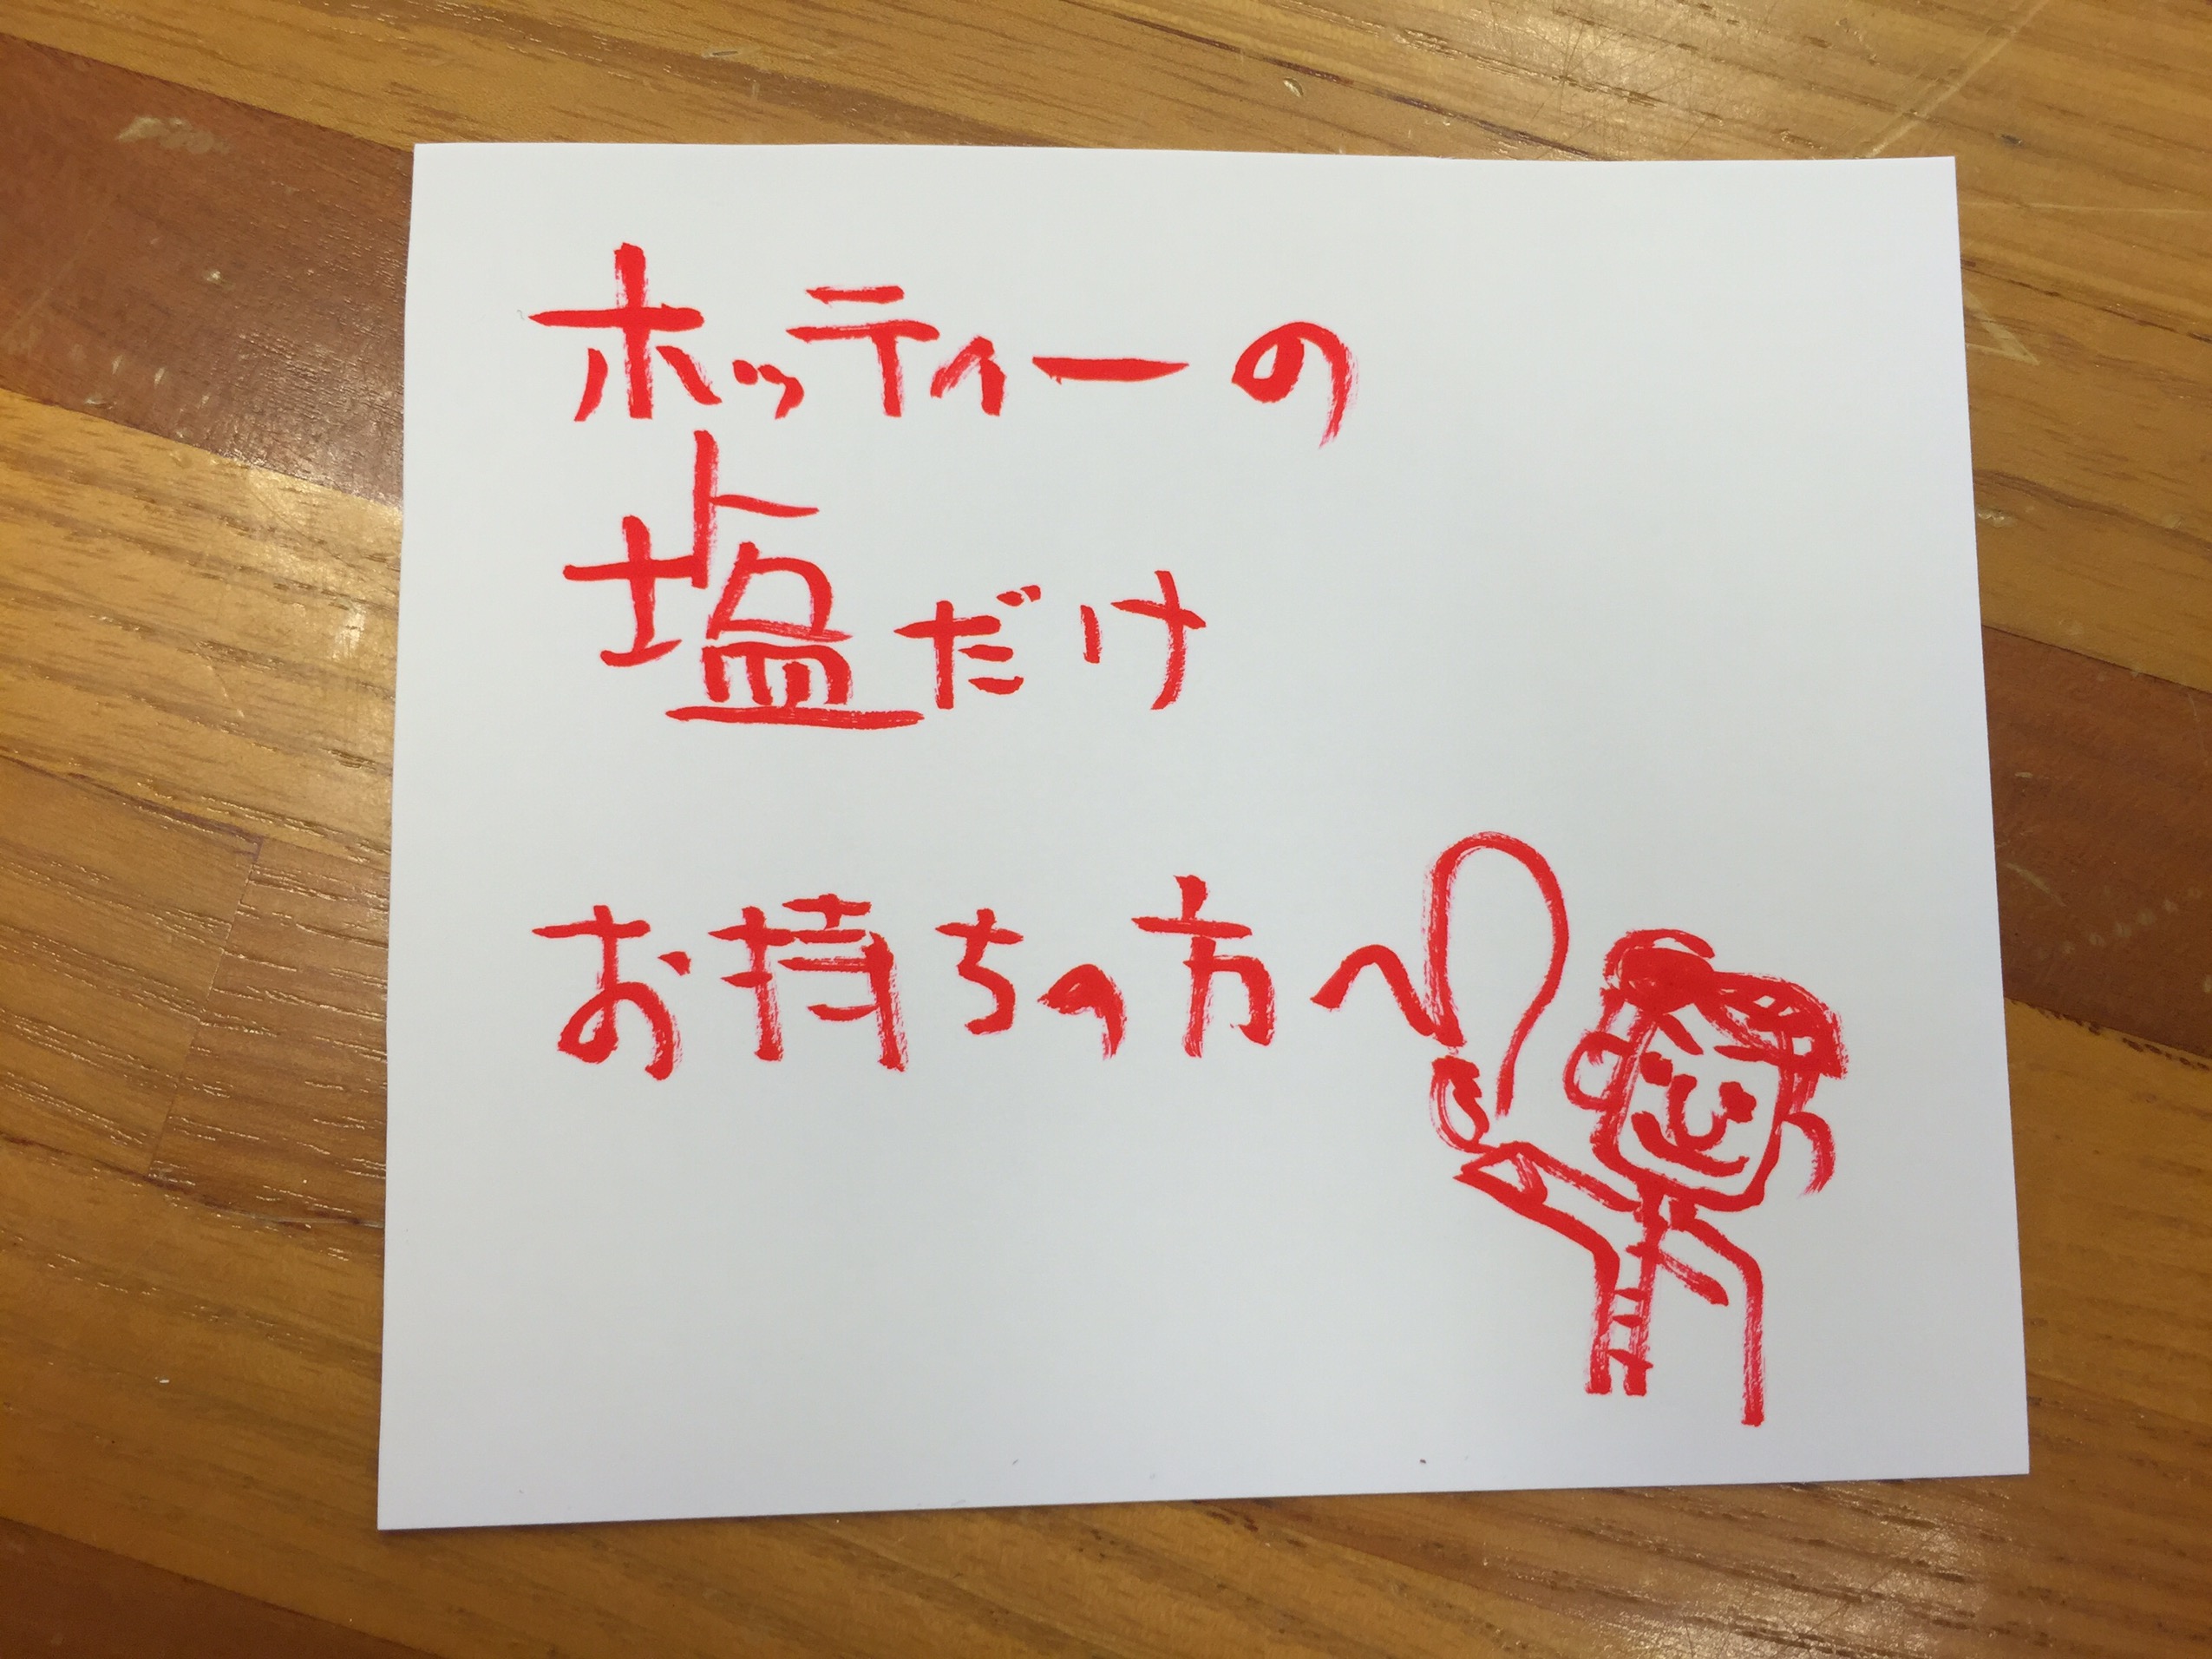 ホッティーの
塩だけ
お持ちの方へ